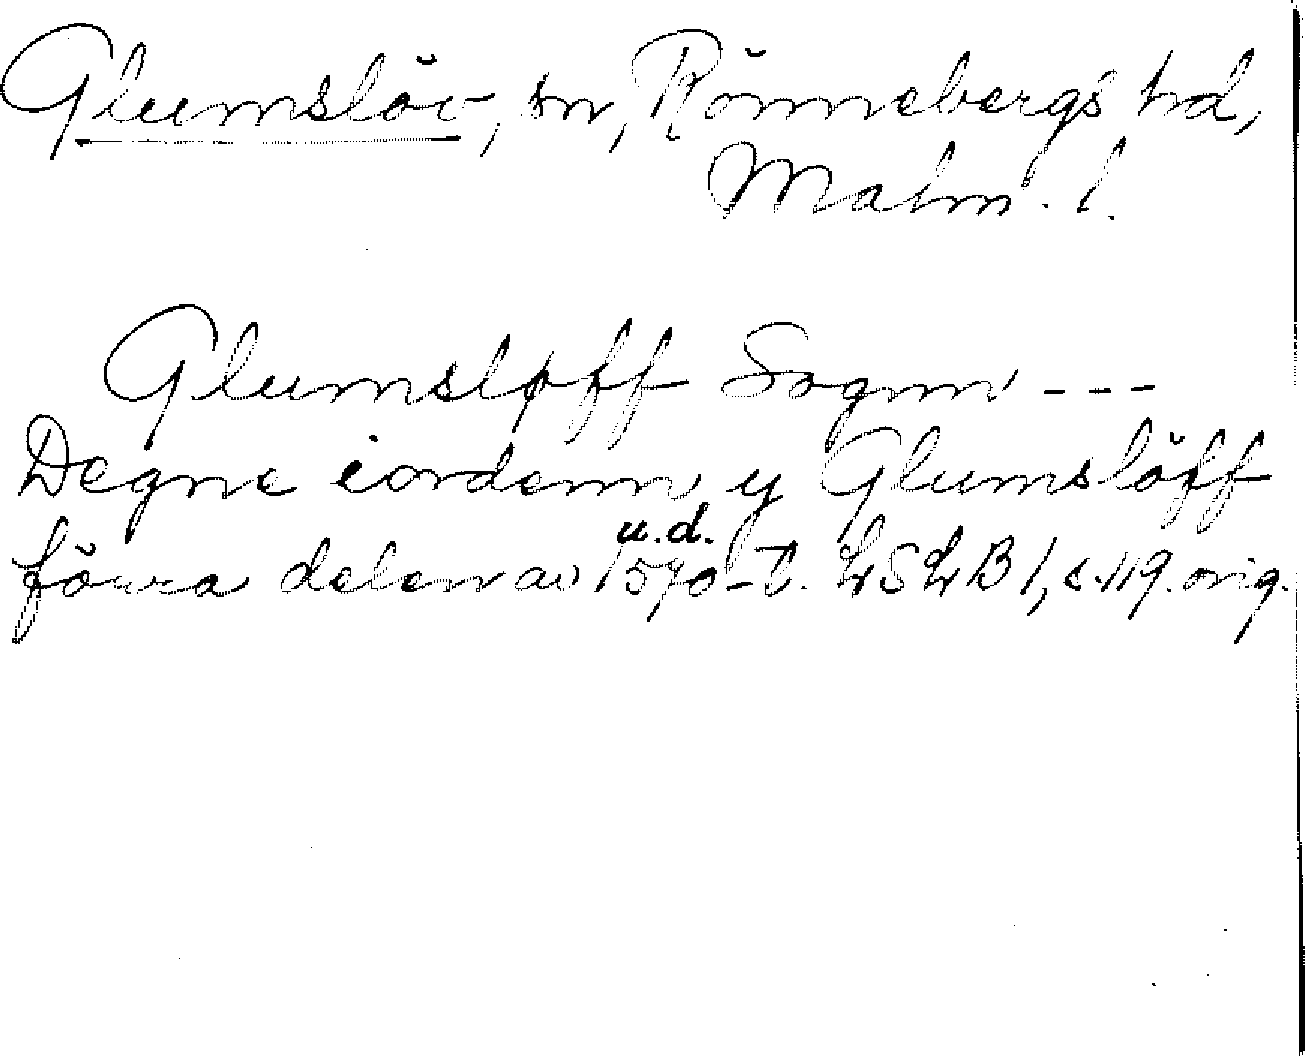 Glumslöv, sn, Rönnebergs hd,
Malm. l.
Glumsløff Sognn - - -
Degne iordenn y Glumslöff
u.d.
förra delen av 1570-t. LSLB 1, s. 119. orig.